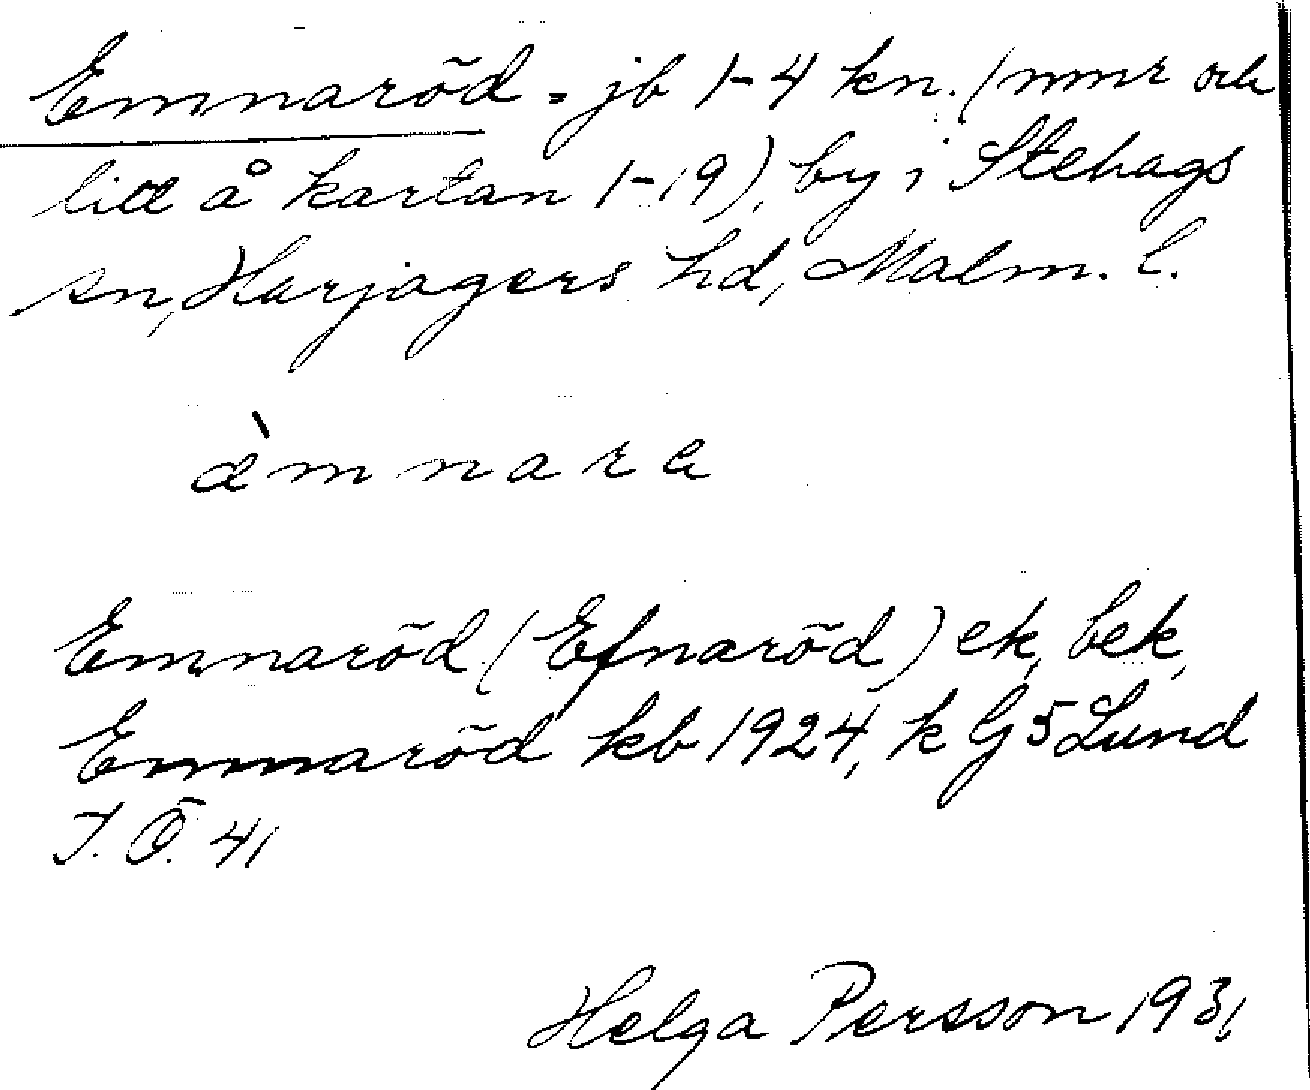 Emnaröd = jb 1-4 kn. (nmr och
litt å kartan 1-19), by i Stehags
sn, Harjagers hd, Malm. l.
æ̀mnara
Emnaröd (Efnaröd) ek, bek,
Emnaröd kb 1924, k G5 Lund
T.Ö. 41
Helga Persson 1931